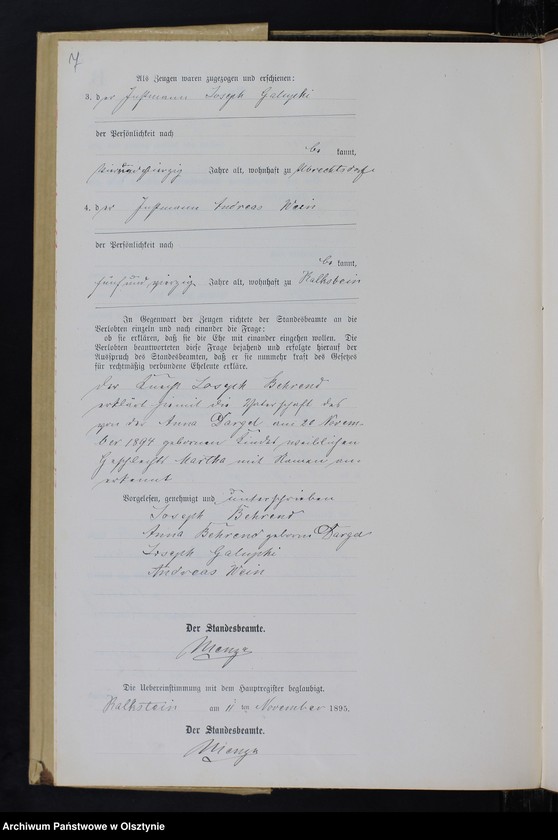 7
Als Zeugen waren zugezogen und erschienen:
3. der Instmann Joseph Galupki
der Persönlichkeit nach
be kannt,
Jahre alt, wohnhaft zu Albrechtsdorf
4. der Instmann Andreas Wein
der Persönlichkeit nach
be kannt,
fünf und vierzig Jahre alt, wohnhaft zu Kalkstein
In Gegenwart der Zeugen richtete der Standesbeamte an die
Verlobten einzeln und nach einander die Frage:
ob sie erklären, daß sie die Ehe mit einander eingehen wollen. Die
Verlobten beantworteten diese Frage bejahend und erfolgte hierauf der
Ausspruch des Standesbeamten, daß er sie nunmehr kraft des Gesetzes
für rechtmäßig verbundene Eheleute erkläre.
Der Knecht Joseph Behrend
erklärt hiemit die Vaterschaft des
von der Anna Dargel am 20 Novem-
ber 1894 geborenen Kindes weiblichen
Geschlechts Martha mit Namen an-
erkannt
Vorgelesen, genehmigt und unterschrieben
Joseph Behrend
Anna Behrend geborne Dargel
Joseph Galupki
Andreas Wein
Der Standesbeamte.
Die Uebereinstimmung mit dem Hauptregister beglaubigt.
Kalkstein am 11 ten November 1895.
Der Standesbeamte.
Archiwum Państwowe w Olsztynie